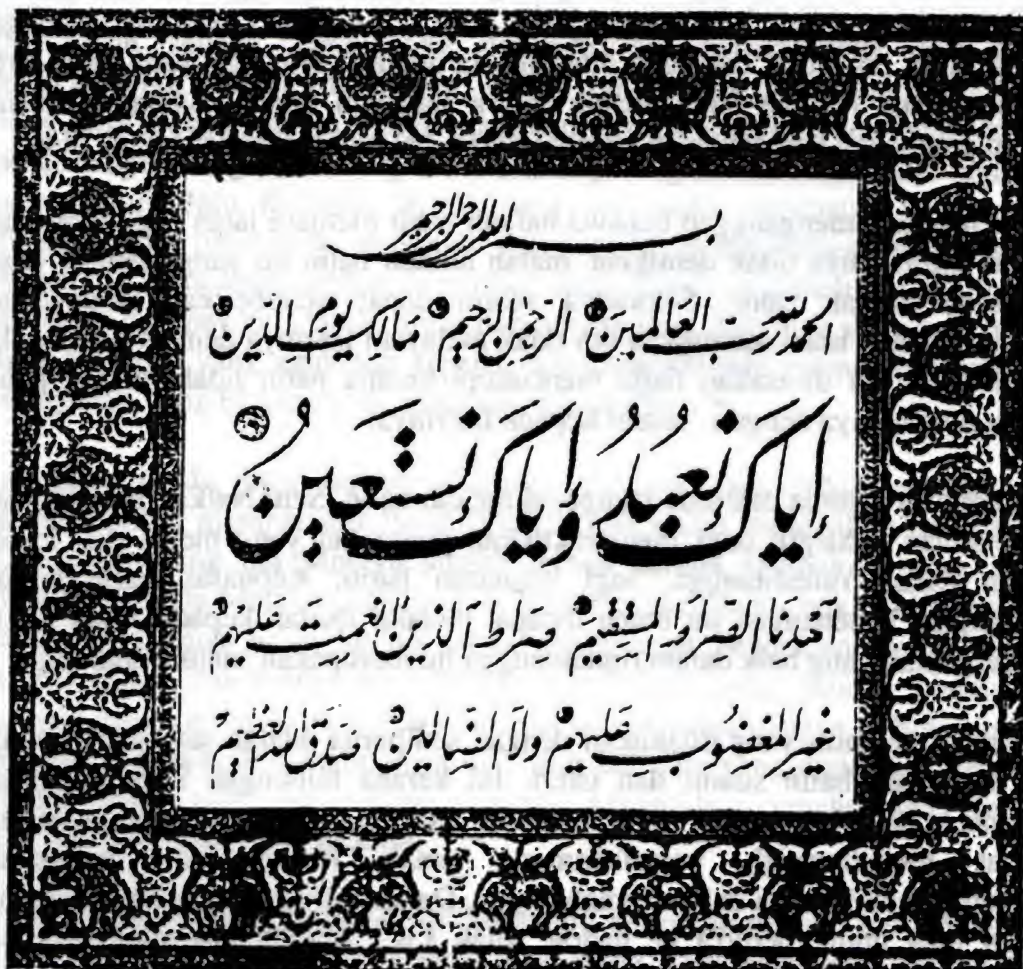 بسم الله الرحمن الرحيم
الحمد لله رب العالمين الرحمن الرحيم مالك يوم الدين
إياك نعبد وإياك نستعين
اهدنا الصراط المستقيم صراط الذين أنعمت عليهم
غير المغضوب عليهم ولا الضالين صدق الله العظيم